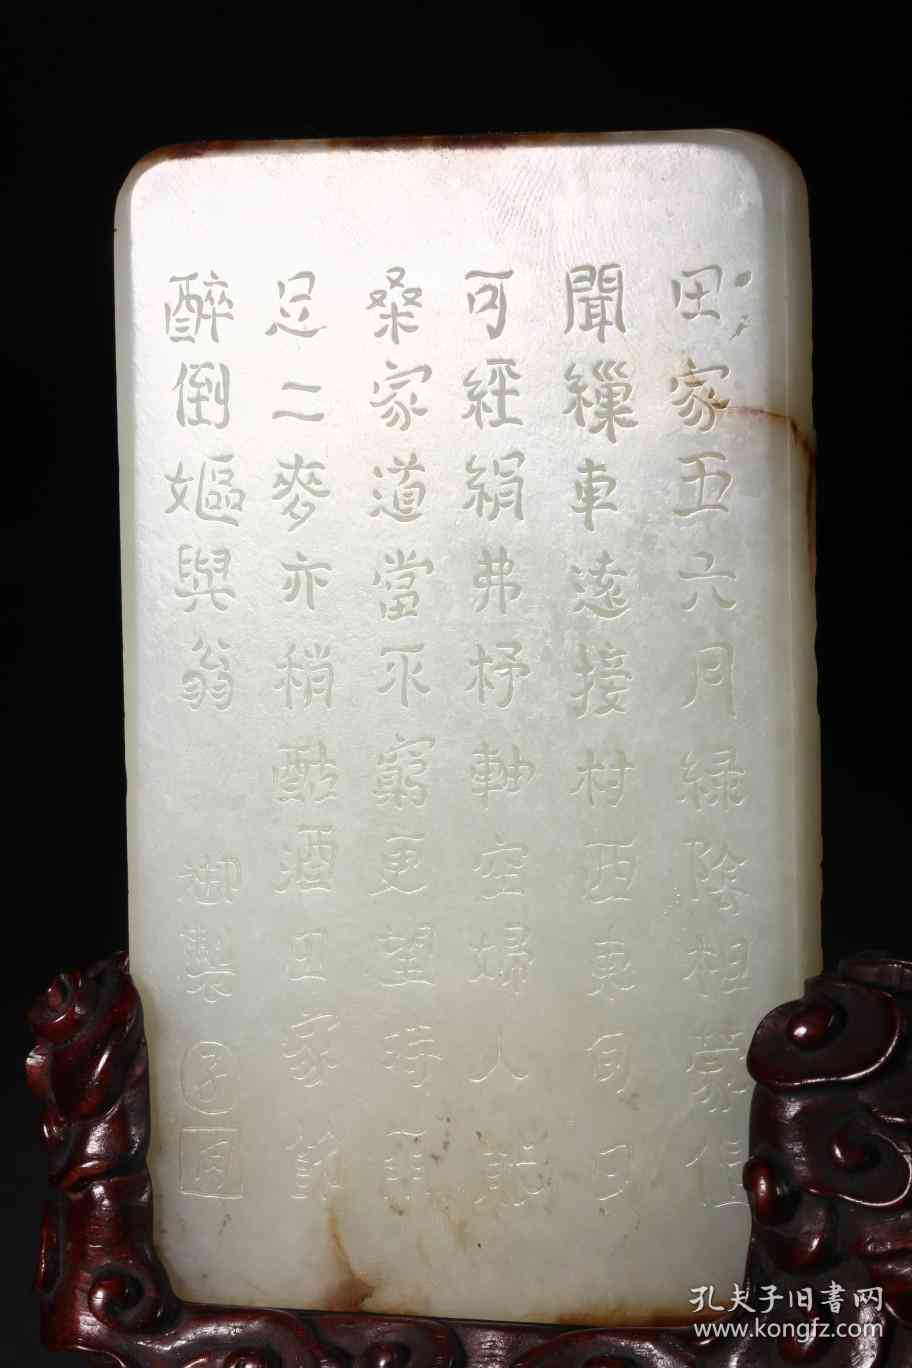 田家五六月緑陰相蒙但
聞繅車遠接村西東旬日
可經絹弗杼軸空婦人能
桑家道當不窮更望時雨
足二麥亦稍酤酒田家飲
醉倒嫗與翁 御製
孔夫子旧書网
www.kongfz.com